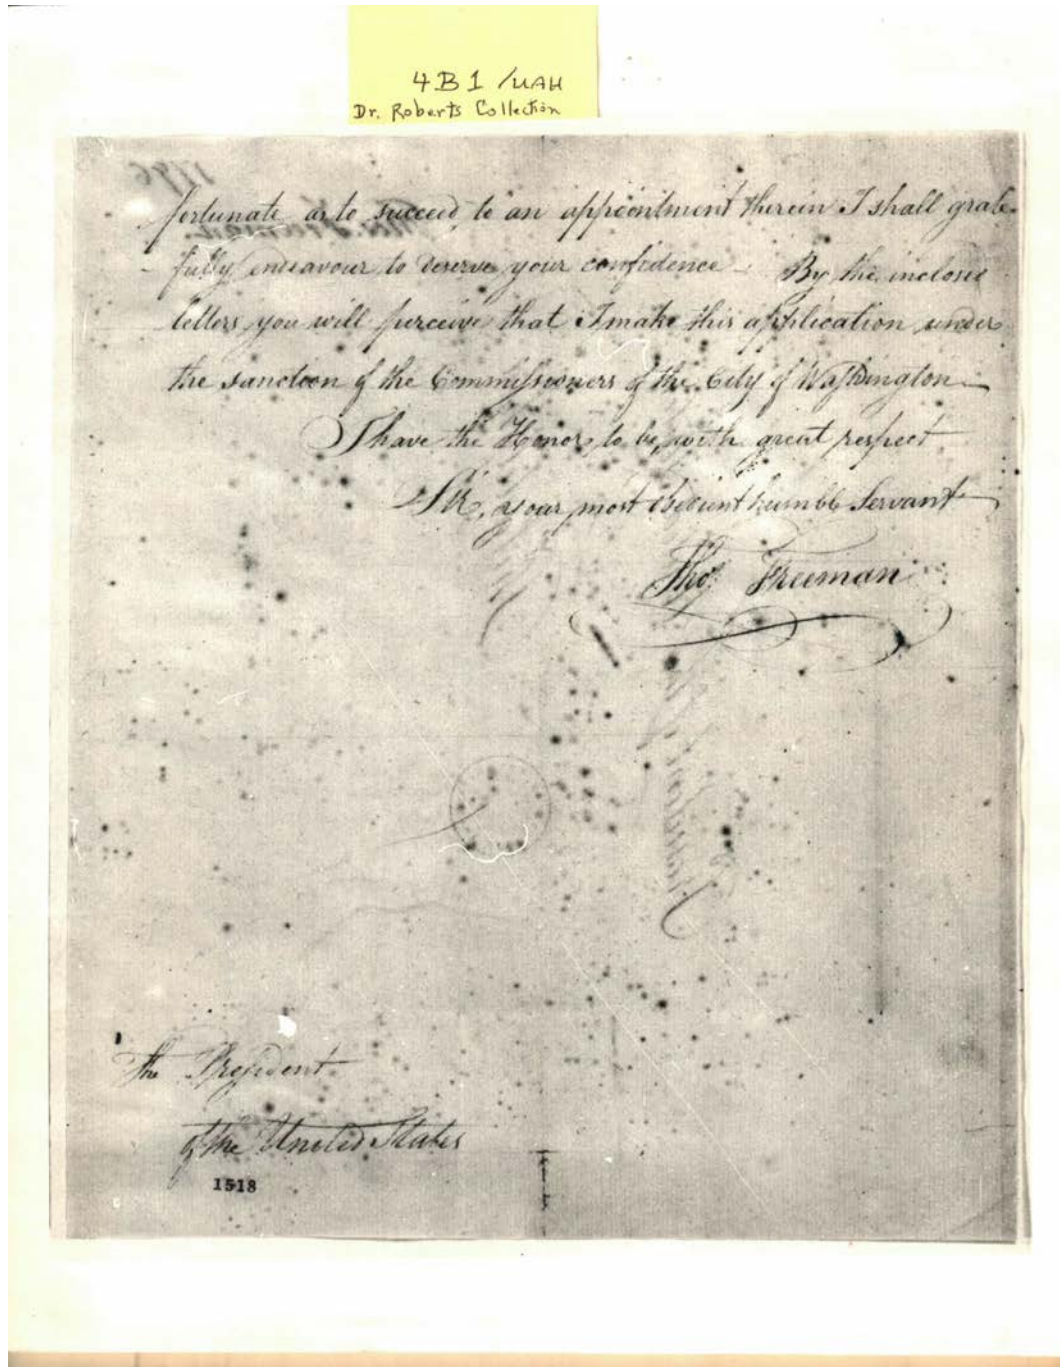 4B1/UAH
Dr. Roberts Collection
1796
fortunate as to succeed to an appointment therein I shall grate-
-fully endeavour to deserve your confidence - By the inclosed
letters you will perceive that I make this application under
the sanction of the Commissioners of the City of Washington
I have the Honor to be, with great respect
Sir, your most obedient humble Servant
Thos. Freeman
The President
of the United States
1518